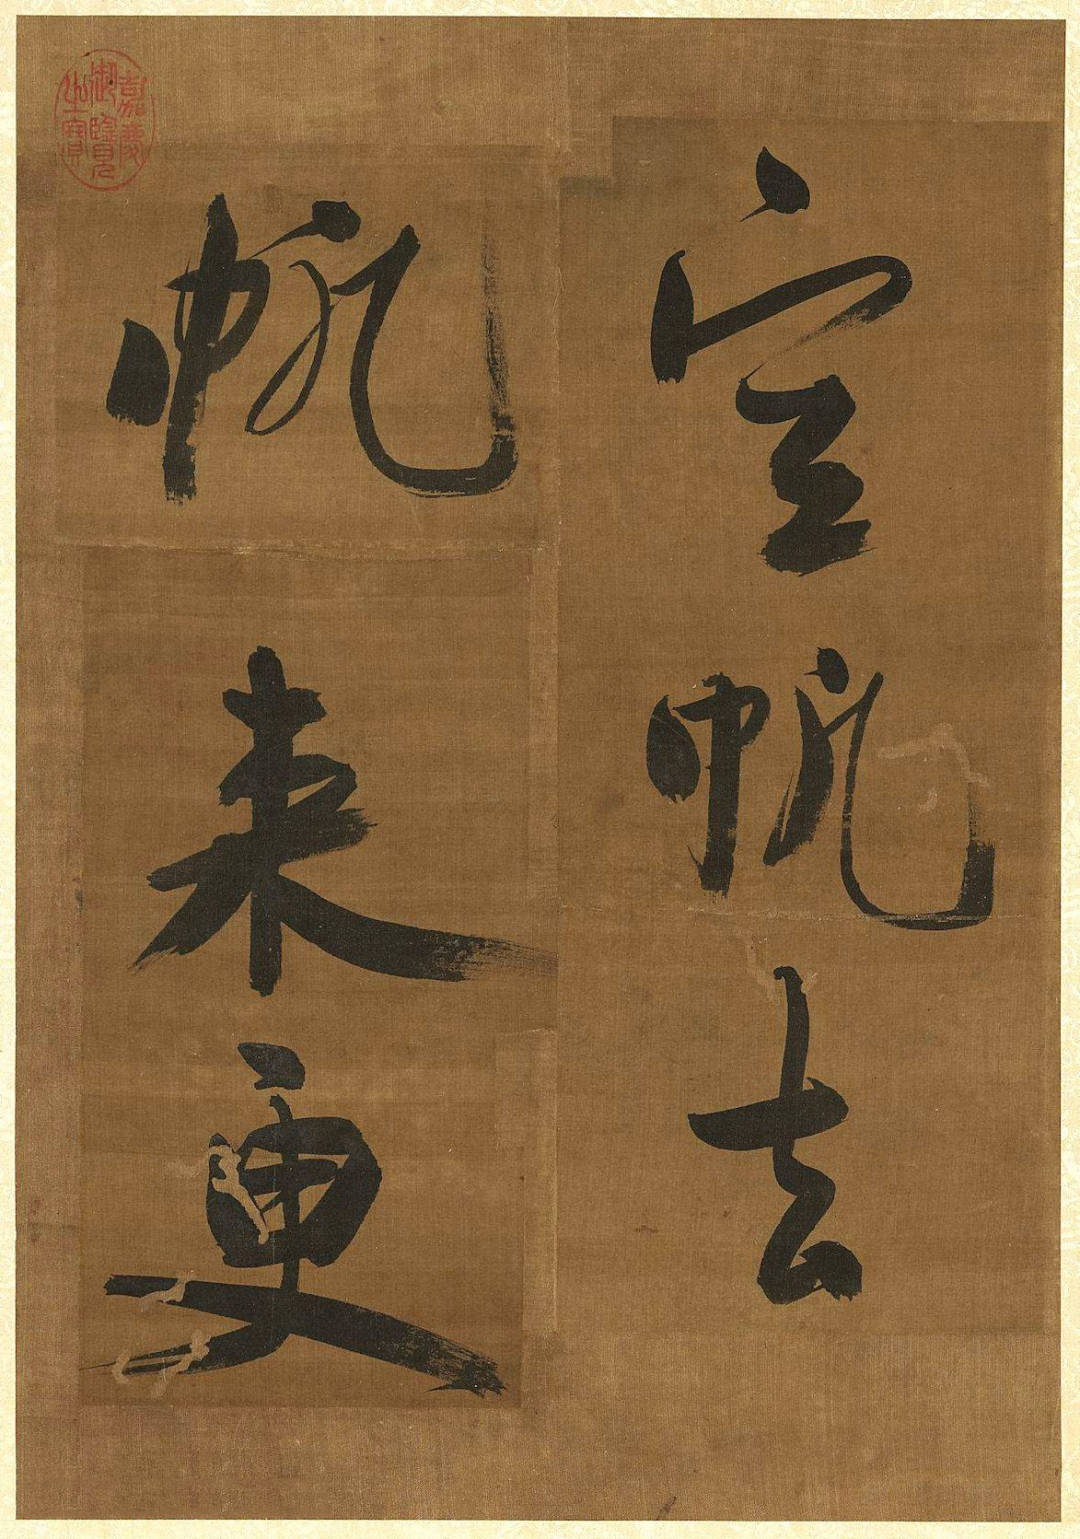 空帆去
帆来更
嘉慶御覽之寶